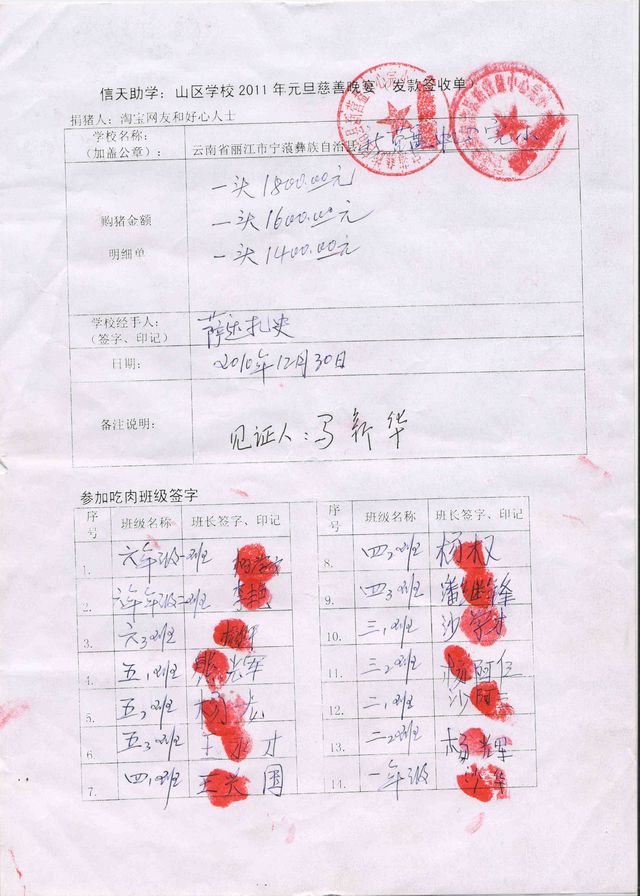 信天助学：山区学校 2011 年元旦慈善晚宴（发款签收单）
捐猪人：淘宝网友和好心人士
学校名称：
（加盖公章）：
云南省丽江市宁蒗彝族自治县新营盘中心完小
购猪金额
明细单
一头 1800.00元
一头 1600.00元
一头 1400.00元
学校经手人：
（签字、印记）
日期：
2010年12月30日
备注说明：
见证人：马新华
参加吃肉班级签字
序号 班级名称 班长签字、印记
1. 六年级一班
2. 六年级二班 李艳
3. 六3班
4. 五1班
5. 五2班 杨龙
6. 五3班 王才
7. 四1班 王兴国
序号 班级名称 班长签字、印记
8. 四2班 杨权
9. 四3班 潘锋
10. 三1班 沙学才
11. 三2班 杨阿仁
12. 二1班 沙阿三
13. 二2班 杨辉
14. 一年级